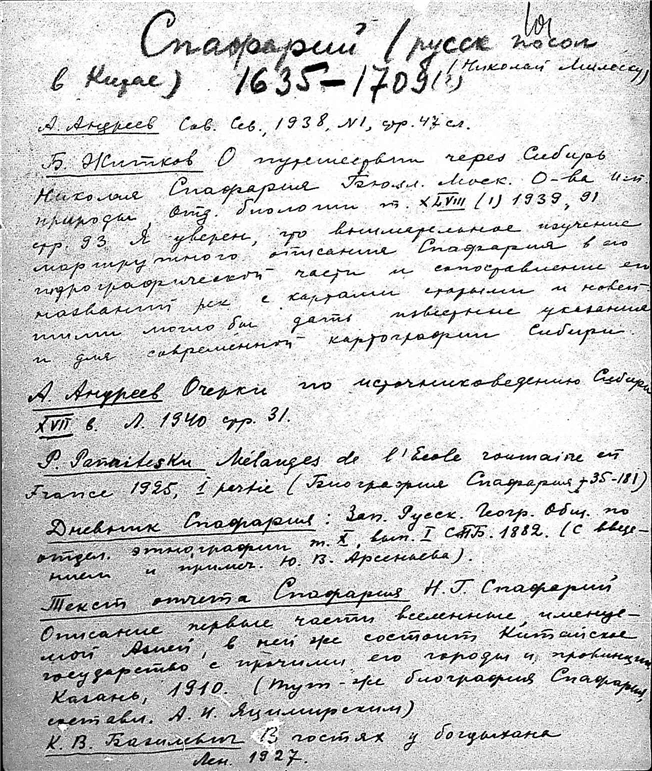 101
Спафарий (русск посол
в Китае) 1635–1709(?)
(Николай Милеску)
А. Андреев Сов. Сев., 1938, N1, стр. 47 сл.
Б. Житков О путешествии через Сибирь
Николая Спафария Бюлл. Моск. О-ва исп.
природы Отд. биологии т. XLVIII (1) 1939, 91
стр. 93 Я уверен, что внимательное изучение
маршрутного описания Спафария в его
гидрографической части и сопоставление его
названий рек с картами старыми и новей-
шими могло бы дать известные указания
и для современной картографии Сибири.
А. Андреев Очерки по источниковедению Сибири
XVII в. Л. 1940 стр. 31.
P. Panaitesku Mélanges de l'Ecole roumaine en
France 1925, 1 partie (Биография Спафария, 35-181)
Дневник Спафария: Зап. Русск. Геогр. Общ. по
отдел. этнографии т. X, вып. I СПБ. 1882. (С введе-
нием и примеч. Ю. В. Арсеньева).
Текст отчета Спафария Н. Г. Спафарий
Описание первые части вселенные, именуе-
мой Азией, в ней же состоит Китайское
государство с прочими его городы и провинции
Казань, 1910. (Тут-же биография Спафария,
составл. А. И. Яцимирским)
К. В. Базилевич В гостях у богдыхана
Лен. 1927.